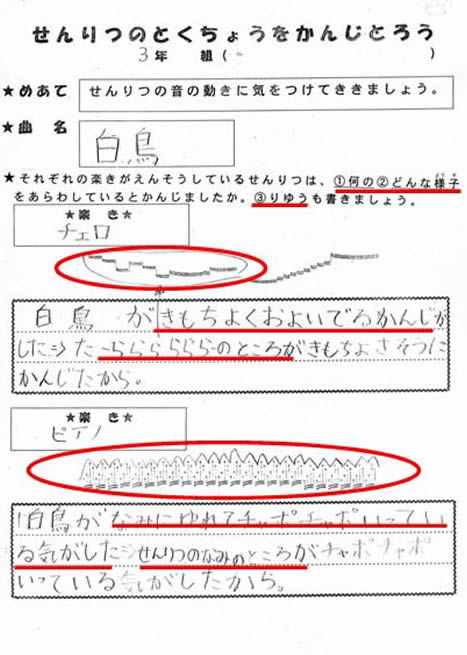 せんりつのとくちょうをかんじとろう
3年　組(　)
★めあて　せんりつの音の動きに気をつけてききましょう。
★曲名　白鳥
★それぞれの楽きがえんそうしているせんりつは、①何の②どんな様子
をあらわしているとかんじましたか。③りゆうも書きましょう。
★楽き★
チェロ
白鳥がきもちよくおよいでるかんじが
した⇒た―らららららら―のところがきもちよさそうに
かんじたから。
★楽き★
ピアノ
白鳥がなみにゆれてチャポチャポいってい
る気がした⇒せんりつのなみのところがチャポチャポ
いっている気がしたから。